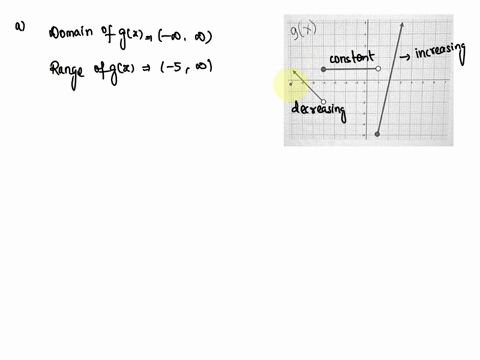 a) Domain of g(x) = (-∞, ∞)
Range of g(x) ⇒ (-5, ∞)
g(x)
constant
→ increasing
decreasing